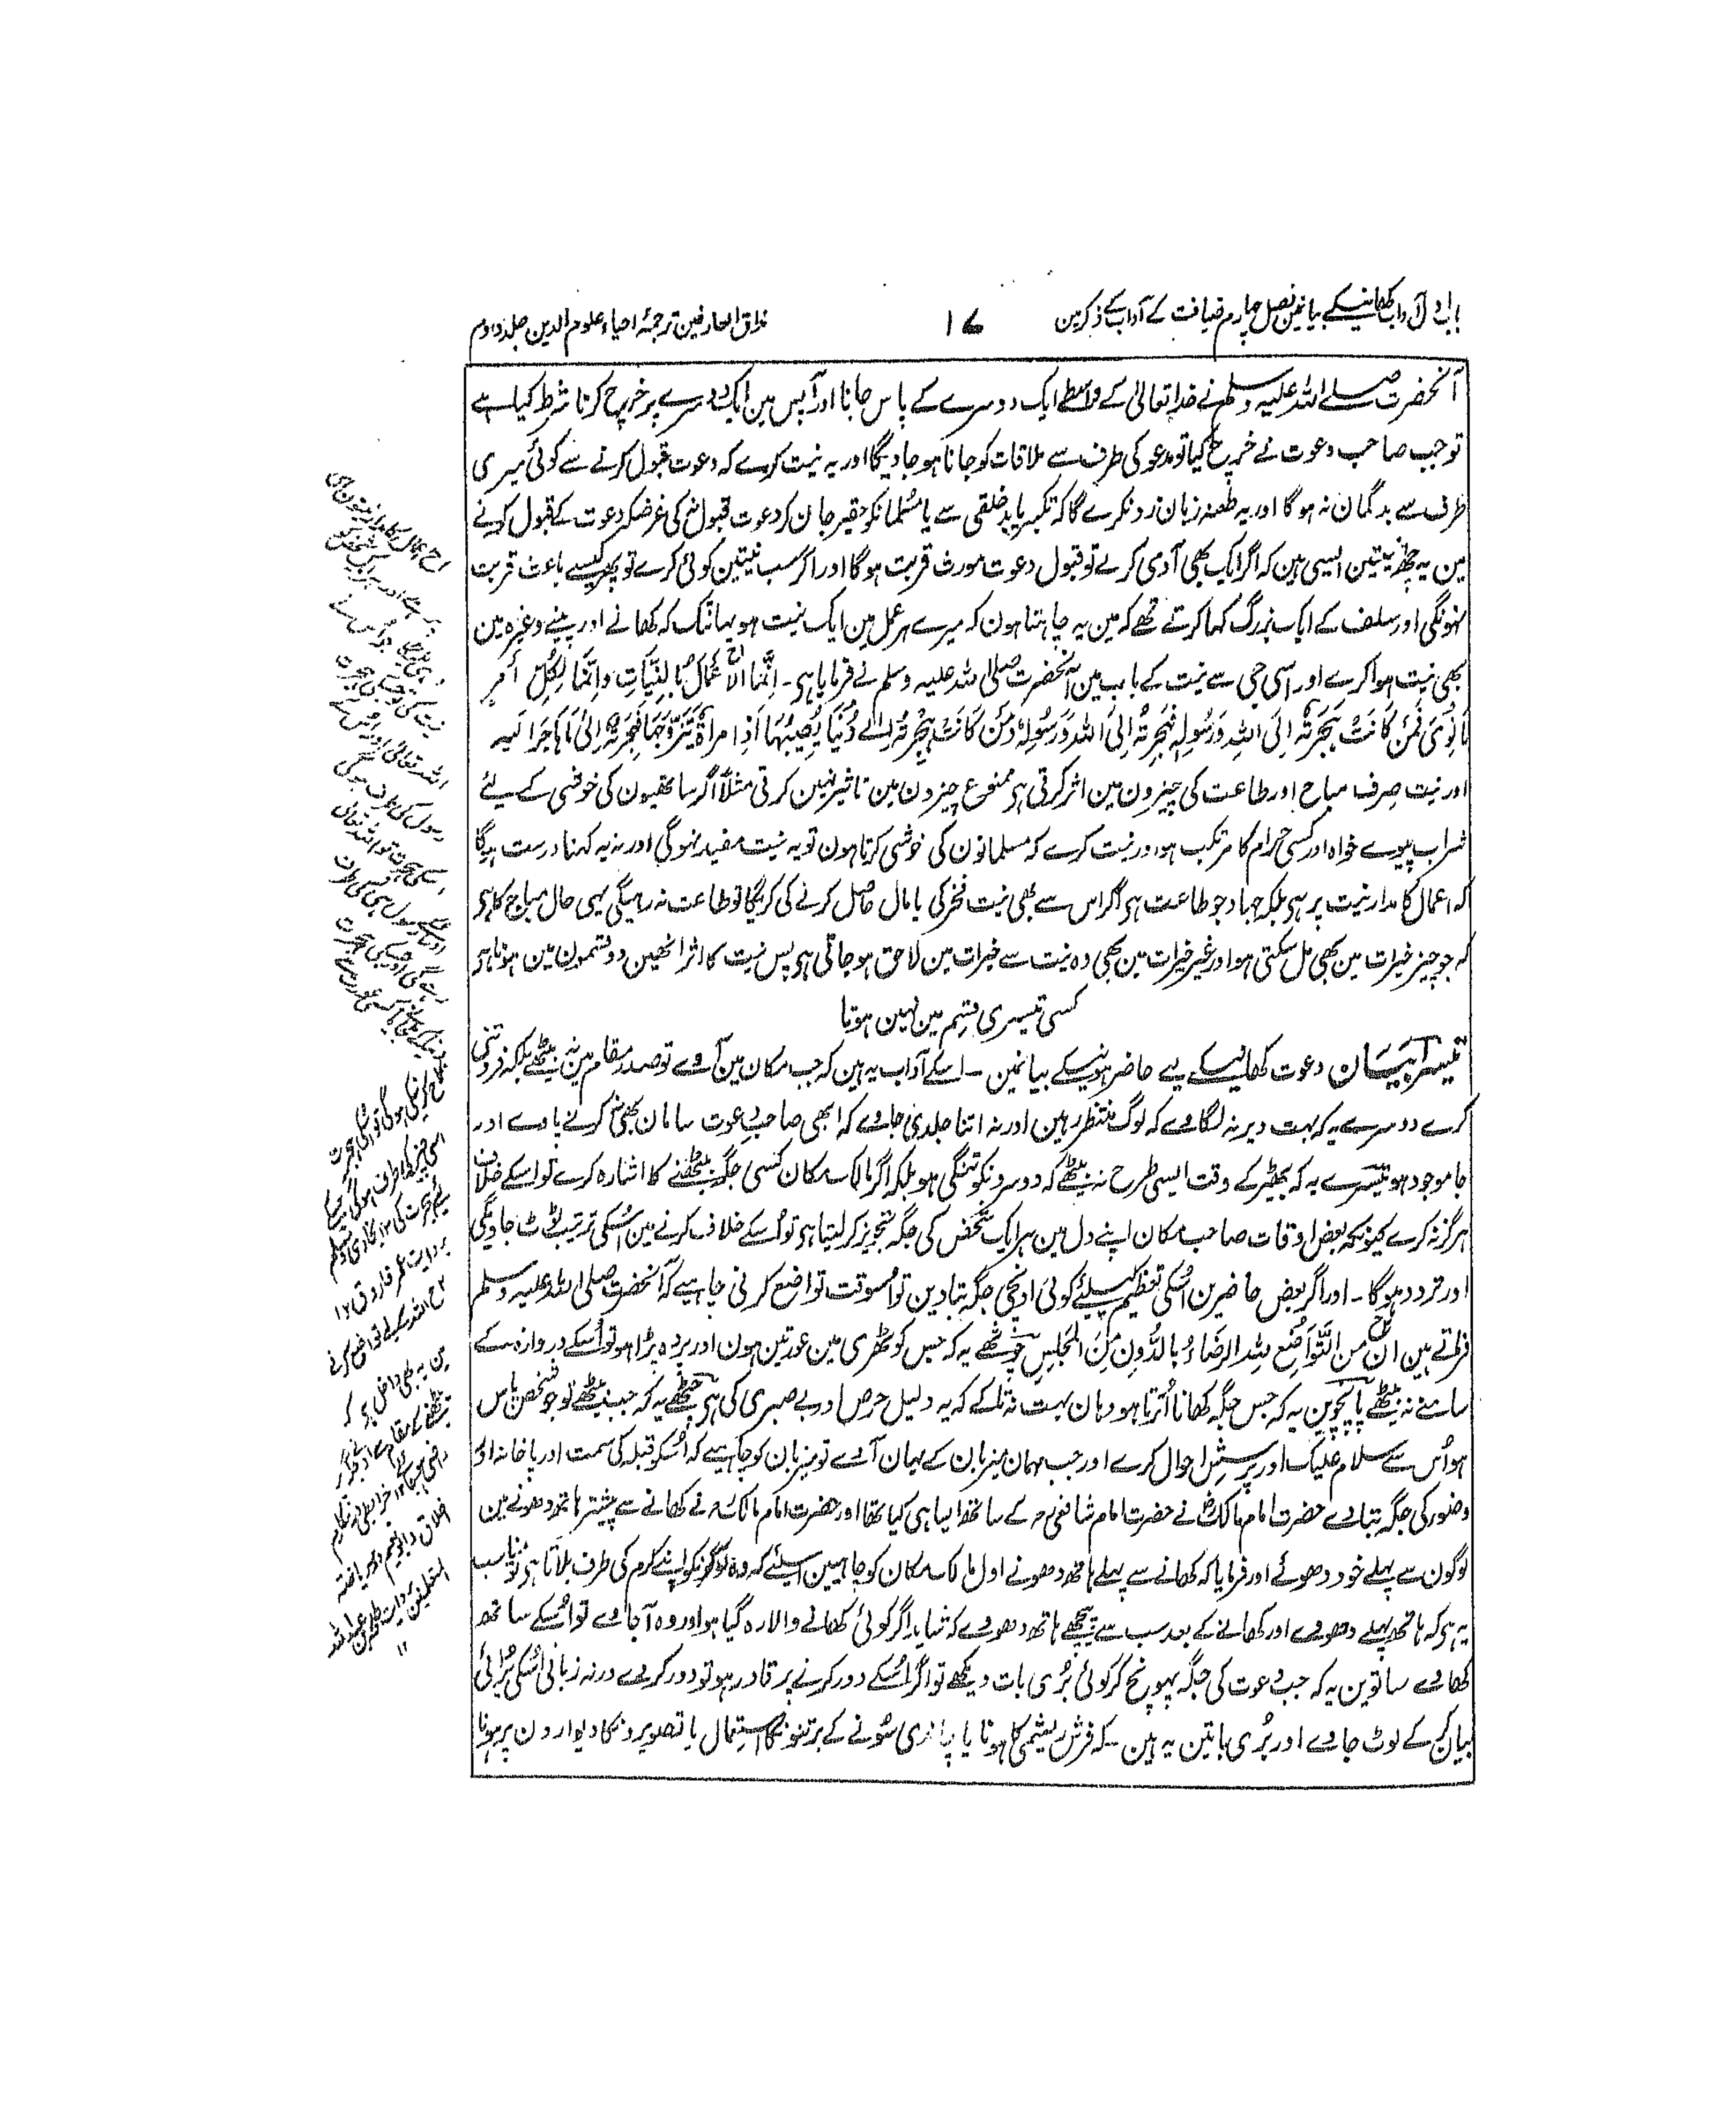 باب اول آداب کھانیکے بیانمین فصل چہارم ضیافت کے آداب کے ذکرمین
۱۷
مذاق العارفین ترجمۂ احیاء علوم الدین جلد دوم
آنحضرت صلے اللہ علیہ وسلم نے خدا تعالیٰ کے واسطے ایک دوسرے کے پاس جانا اور آپس مین ایک دوسرے پر خرچ کرنا شرط کیا ہے
تو جب صاحب دعوت نے خرچ کیا تو مدعو کی طرف سے ملاقات کو جانا ہو جاویگا اور یہ نیت کرے کہ دعوت قبول کرنے سے کوئی میری
طرف سے بدگمان نہ ہوگا اور یہ طعنہ زبان زد نکرے گا کہ تکبر یا بدخلقی سے یا مسلمانکو حقیر جان کر دعوت قبول نہ کی غرضکہ دعوت کے قبول کرنے
مین یہ چھ نیتین ایسی ہین کہ اگر ایک بھی آدمی کرے تو قبول دعوت مورث قربت ہوگا اور اگر سب نیتین کوئی کرے تو پھر کیسے باعث قربت
نہونگی اور سلف کے ایک بزرگ کہا کرتے تھے کہ مین یہ چاہتا ہون کہ میرے ہر عمل مین ایک نیت ہو یہانتک کہ کھانے اور پینے وغیرہ مین
بھی نیت ہوا کرے اور اسی جی سے نیت کے باب مین آنحضرت صلی اللہ علیہ وسلم نے فرمایا ہی۔ اِنَّمَا الْاَعْمَالُ بِالنِّیَّاتِ وَاِنَّمَا لِکُلِّ امرٍ
مَا نَوٰی فَمَنْ کَانَتْ ہِجْرَتُہٗ اِلَی اللہِ وَرَسُوْلِہٖ فَہِجْرَتُہٗ اِلَی اللہِ وَرَسُوْلِہٖ وَمَنْ کَانَتْ ہِجْرَتُہٗ اِلٰے دُنْیَا یُصِیْبُہَا اَوِ امْرَاَۃٍ یَتَزَوَّجُہَا فَہِجْرَتُہٗ اِلٰی مَا ہَاجَرَ اِلَیہ
اور نیت صرف مباح اور طاعت کی چیزون مین اثر کرتی ہی ممنوع چیزون مین تاثیر نہین کرتی مثلاً اگر ساتھیون کی خوشی کے لیئے
شراب پیوے خواہ اور کسی حرام کا مرتکب ہو اور نیت کرے کہ مسلمانون کی خوشی کرتا ہون تو یہ نیت مفید نہوگی اور نہ یہ کہنا درست ہوگا
کہ اعمال کا مدار نیت پر ہی بلکہ جہاد جو طاعت ہی اگر اس سے بھی نیت فخر کی یا مال حاصل کرنے کی کریگا تو طاعت نہ رہیگی یہی حال مباح کا ہی
کہ جو چیز خیرات مین بھی مل سکتی ہو اور غیر خیرات مین بھی وہ نیت سے خیرات مین لاحق ہو جاتی ہی پس نیت کا اثر انھین دو قسمون مین ہوتا ہی
کسی تیسری قسم مین نہین ہوتا
تیسرا بیان دعوت کھانیکے لیے حاضر ہونیکے بیانمین۔ اسکے آداب یہ ہین کہ جب مکان مین آوے تو صدر مقام مین نہ بیٹھے بلکہ فروتنی
کرے دوسرے یہ کہ بہت دیر نہ لگاوے کہ لوگ منتظر رہین اور نہ اتنا جلدی جاوے کہ ابھی صاحب دعوت سامان بھی نہ کرنے پاوے اور
جا موجود ہو تیسرے یہ کہ بھیڑ کے وقت ایسی طرح نہ بیٹھے کہ دوسرونکو تنگی ہو بلکہ اگر مالک مکان کسی جگہ بیٹھنے کا اشارہ کرے تو اسکے خلاف
ہرگز نہ کرے کیونکہ بعض اوقات صاحب مکان اپنے دل مین ہر ایک شخص کی جگہ تجویز کر لیتا ہی تو اُسکے خلاف کرنے مین اُسکی ترتیب ٹوٹ جاویگی
اور تردد ہوگا۔ اور اگر بعض حاضرین اُسکی تعظیم کیلئے کوئی اونچی جگہ بتادین تو اُسوقت تواضع کرنی چاہیے کہ آنحضرت صلی اللہ علیہ وسلم
فرماتے ہین اِنَّ مِنَ التَّوَاضُعِ لِلہِ الرِّضَاءُ بِالدُّوْنِ مِنَ الْمَجْلِسِ چوتھے یہ کہ جس کوٹھری مین عورتین ہون اور پردہ پڑا ہو تو اُسکے دروازہ کے
سامنے نہ بیٹھے پانچوین یہ کہ جس جگہ کھانا اُترتا ہو وہان بہت نہ تاکے کہ یہ دلیل حرص اور بے صبری کی ہی چھٹے یہ کہ جب بیٹھے تو جو شخص پاس
ہو اُس سے سلام علیک اور پرسش احوال کرے اور جب مہمان میزبان کے یہان آوے تو میزبان کو چاہیے کہ اُسکو قبلہ کی سمت اور پاخانہ اور
وضو کی جگہ بتادے حضرت امام مالک نے حضرت امام شافعی رح کے ساتھ ایسا ہی کیا تھا اور حضرت امام مالک نے کھانے سے پیشتر ہاتھ دھونے مین
لوگون سے پہلے خود دھوئے اور فرمایا کہ کھانے سے پہلے ہاتھ دھونے اول مالک مکان کو چاہیین اسلیئے کہ وہ لوگونکو اپنے کرم کی طرف بلاتا ہی تو مناسب
یہ ہی کہ ہاتھ پہلے دھووے اور کھانے کے بعد سب سے پیچھے ہاتھ دھووے کہ شاید اگر کوئی کھانے والا رہ گیا ہو اور وہ آجاوے تو اُسکے ساتھ
کھاوے ساتوین یہ کہ جب دعوت کی جگہ پہونچ کر کوئی بُری بات دیکھے تو اگر اُسکے دور کرنے پر قادر ہو تو دور کردے ورنہ زبانی اُسکی بُرائی
بیان کرکے لوٹ جاوے اور بُری باتین یہ ہین۔ کہ فرش ریشمی کا ہونا یا چاندی سونے کے برتنونکا استعمال یا تصویرونکا دیوارون پر ہونا
اسی چیز کی طرف ہوگی جسکے
لیے ہجرت کی ۱۲ بخاری ومسلم
بروایت عمر فاروق ۱۲
۲ ح اللہ کیلیے تواضع کرنے
مین یہ بھی داخل ہی کہ